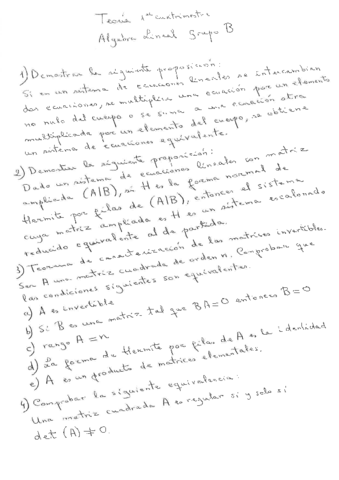 Teoría 1er cuatrimestre
Algebra Lineal Grupo B
1) Demostrar la siguiente proposición:
Si en un sistema de ecuaciones lineales se intercambian
dos ecuaciones, se multiplica una ecuación por un elemento
no nulo del cuerpo o se suma a una ecuación otra
multiplicada por un elemento del cuerpo, se obtiene
un sistema de ecuaciones equivalente.
2) Demostrar la siguiente proposición:
Dado un sistema de ecuaciones lineales con matriz
ampliada (A|B), si H es la forma normal de
Hermite por filas de (A|B), entonces el sistema
cuya matriz ampliada es H es un sistema escalonado
reducido equivalente al de partida.
3) Teorema de caracterización de las matrices invertibles.
Sea A una matriz cuadrada de orden n. Comprobar que
las condiciones siguientes son equivalentes.
a) A es invertible
b) Si B es una matriz tal que BA=0 entonces B=0
c) rango A = n
d) La forma de Hermite por filas de A es la identidad
e) A es un producto de matrices elementales.
4) Comprobar la siguiente equivalencia:
Una matriz cuadrada A es regular si y solo si
det (A) ≠ 0.